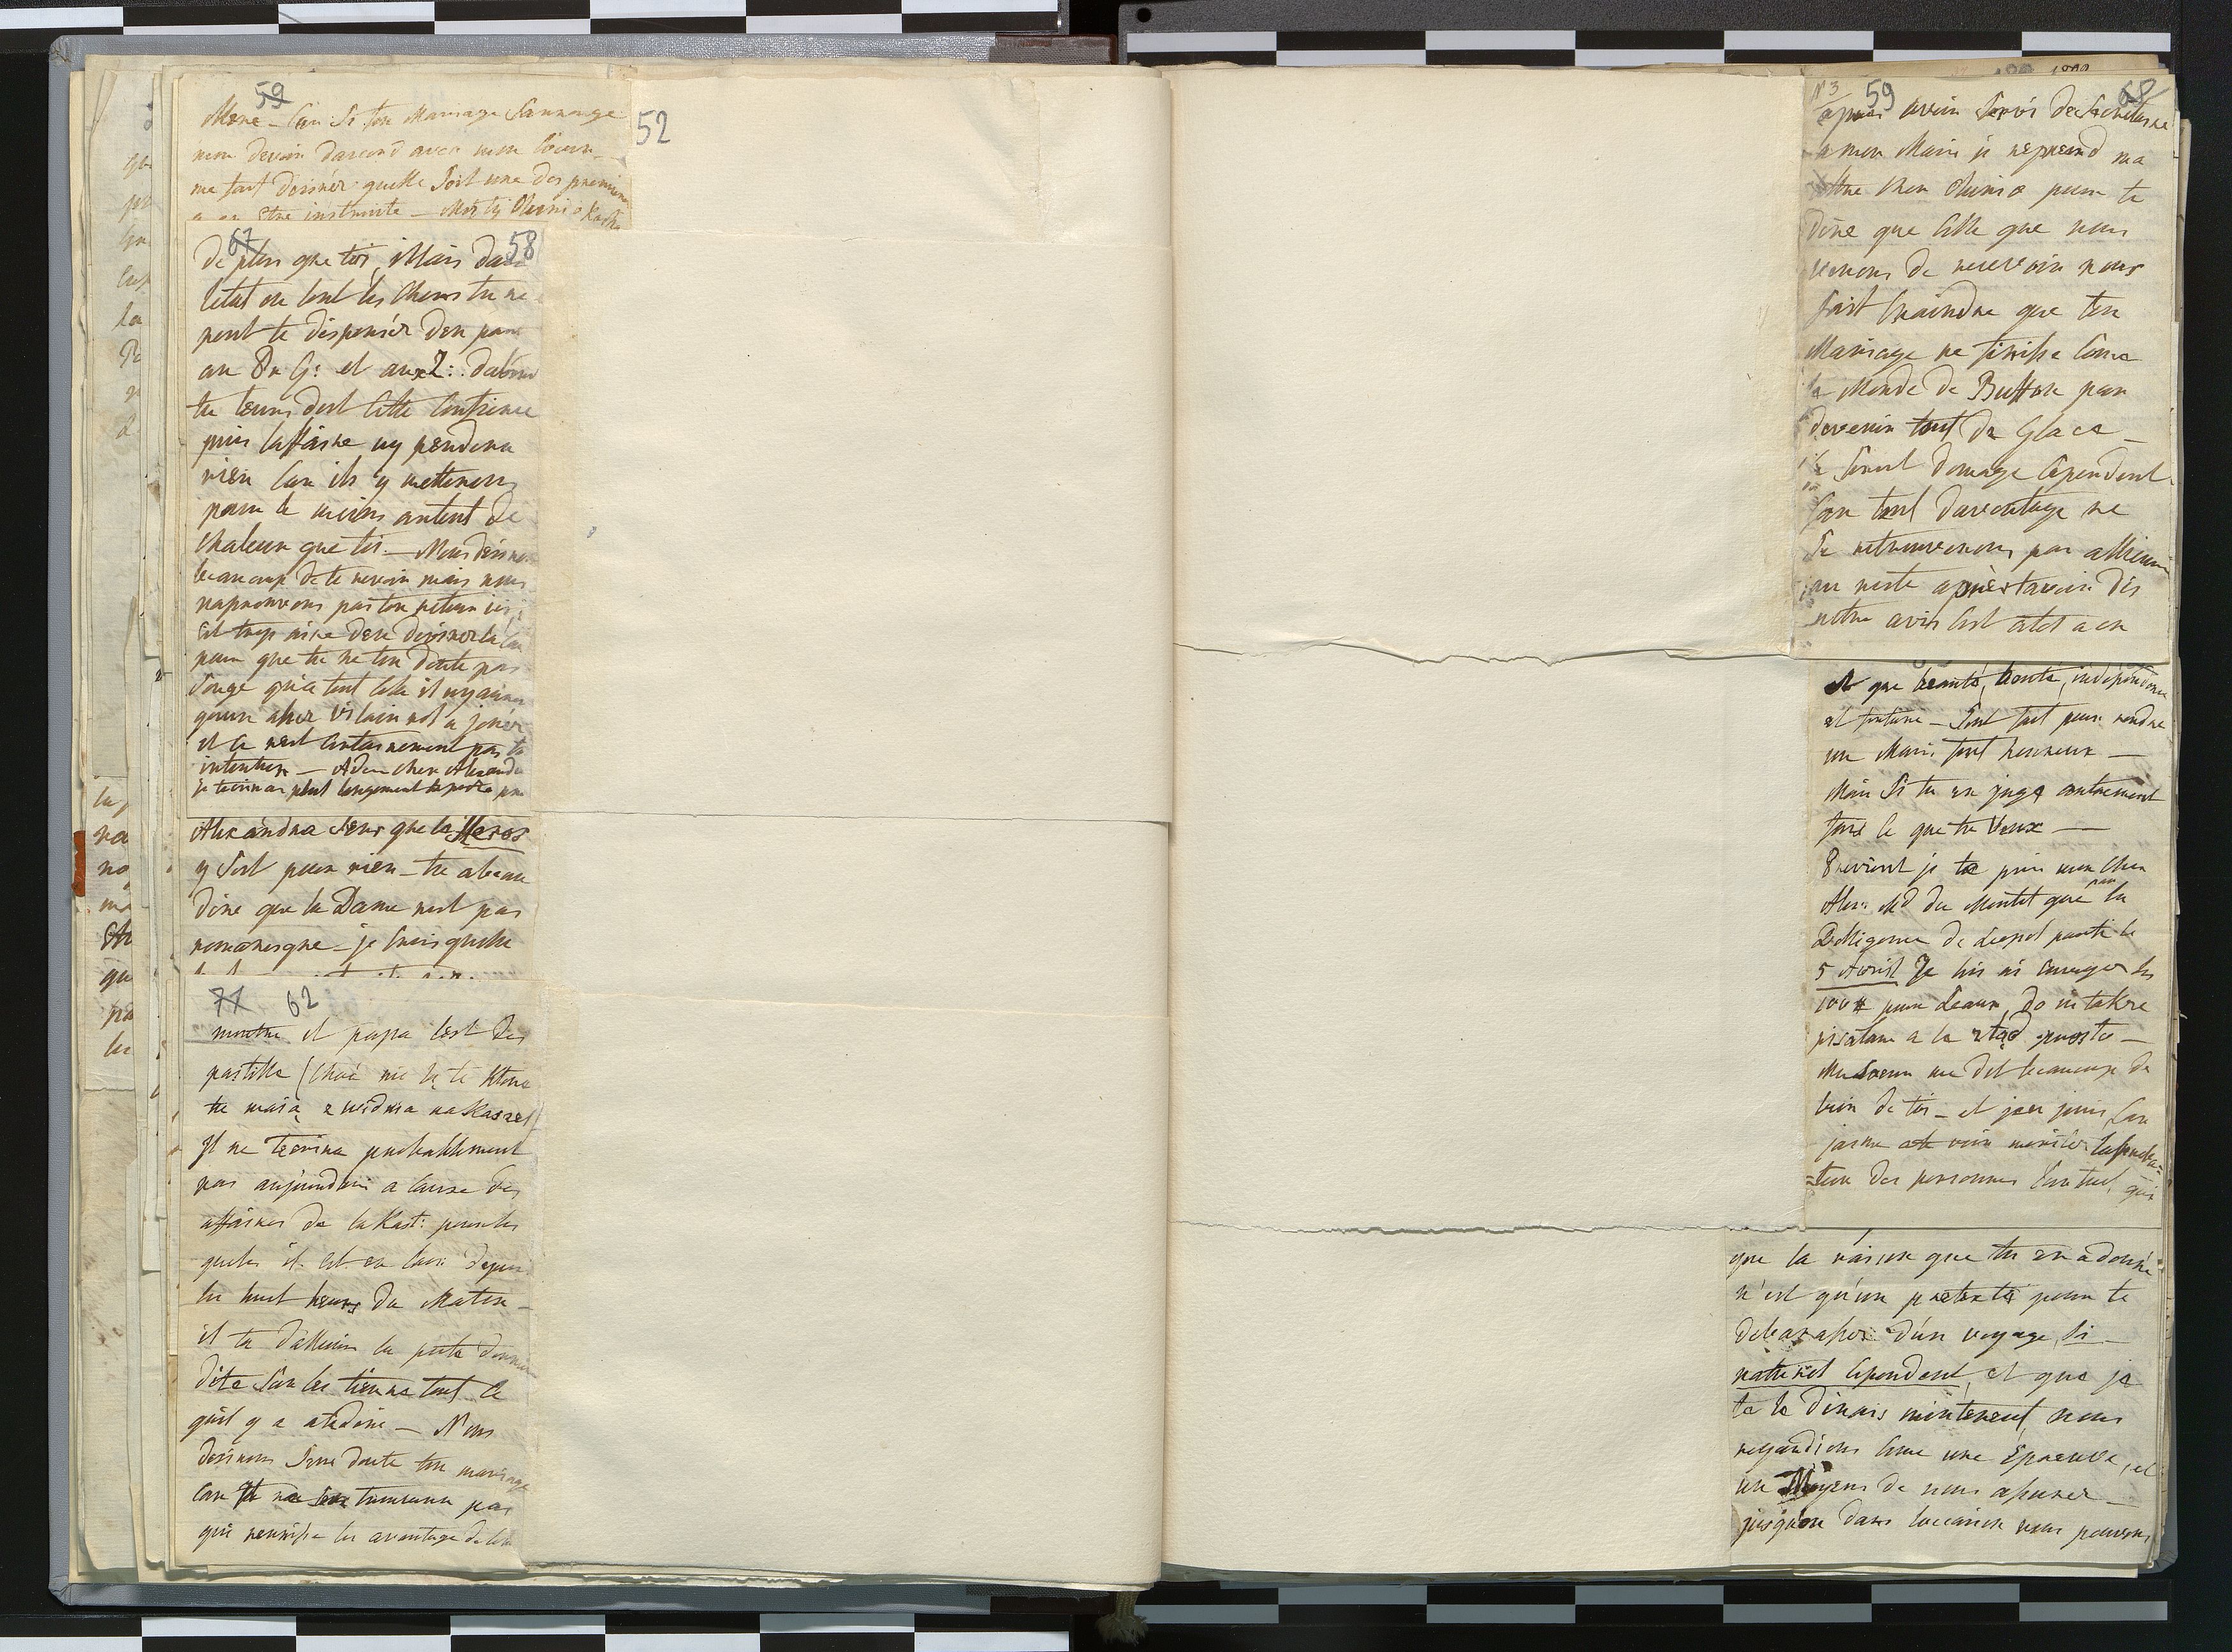 59
Mene - Car Si ton Mariage Sarrange
mon devoir daccord avec mon Coeur
me fait desirér quelle Soit une des premiere
a en Etre instruite - Mon Olesio
52
67 58
de plus que toi, Mais dans
letat ou sont les choses tu ne
peut te dispensér den parlé
au P. G: et aux 2: dabord
tu leurs doit cette confience
puis laffaire ny pendera
rien Car ils y metterons
pour le moins autent de
chaleur que toi. - Nous desirons
beaucoup de te revoir mais nous
naprouvons pas ton retour ici
Est trop aise den
pour que tu ne ten doute pas
Songe qua tout cela il ny aura
quun assez vilain rol a jouér
et ce nest certainement pas ta
intention - Adieu cher Alexandre
je tecrirai plus longement la poste pro
Alexandre sens que le Heros
y soit pour rien - tu a beau
dire que la Dame nest pas
romanesque - je crois quelle
71 62
montre et papa cest des
pastille (Choć nie są te które
te mają z Widnia na Kaszel)
Il ne tecrira probablement
pas aujourdhui a cause des
affaires de la Kast: pour les
queles il est en cour depuis
les huit heurs du Matin -
il ta dallieurs la poste derniere
dite Sur les tiens tout ce
quil y a a te dire - Nous
desirons Sans doute ton mariage
Car Il ne sen trouvera pas
qui reunisse les avantage de cela
N 3 59 68
apres avoir Servi de Secretaire
a mon Mari je reprend ma
lettre cher Olesio pour te
dire que celle que nous
venons de recevoir nous
fait craindre que ton
Mariage ne finisse come
le Monde de Buffon par
devenir tout de Glace -
Ce Seroit domage cependent
Car tent davantage ne
Se retrouverons pas allieurs
au reste apres tavoir dis
notre avis cest atoi a en
que beauté, bonté, indépendence
et fortune - Sont fait pour rendre
un Mari fort heureux -
Mais Si tu en juge autrement
fais ce que tu Veux -
Previent je te prie mon cher
Alex: Md du Montet que par la
Dilligence de Leopol partie le
5 Avril Je lui ai envoyer les
100 # pour Leaux, do niektóre
pisałam a la stąd poste -
Ma Soeur me dit beaucoup de
bien de toi - et jen jouis Car
jaime a te voir meriter laproba=
=tion des personnes Come tel, qui
que la raison que tu en a donée
n'est qu'un pretexte pour te
debarasser d'un voyage Si -
naturel cependent, et que je
te le dirais maintenent, nous
regardions come une Epreuve, et
un Moyens de nous assurer -
jusqu'ou dans loccasion nous pouvons